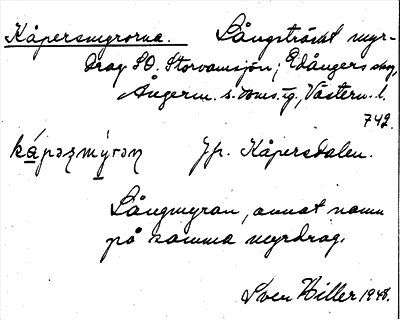 Kåpersmyrorna. Långsträckt myr-
drag SO. Storvamsjön; Edångers skog,
Ångerm. s. doms.g., Västern. l.
742.
kápərmýrəɳ Jfr. Kåpersdalen.
Långmyran, annat namn
på samma myrdrag.
Sven Hiller 1948.